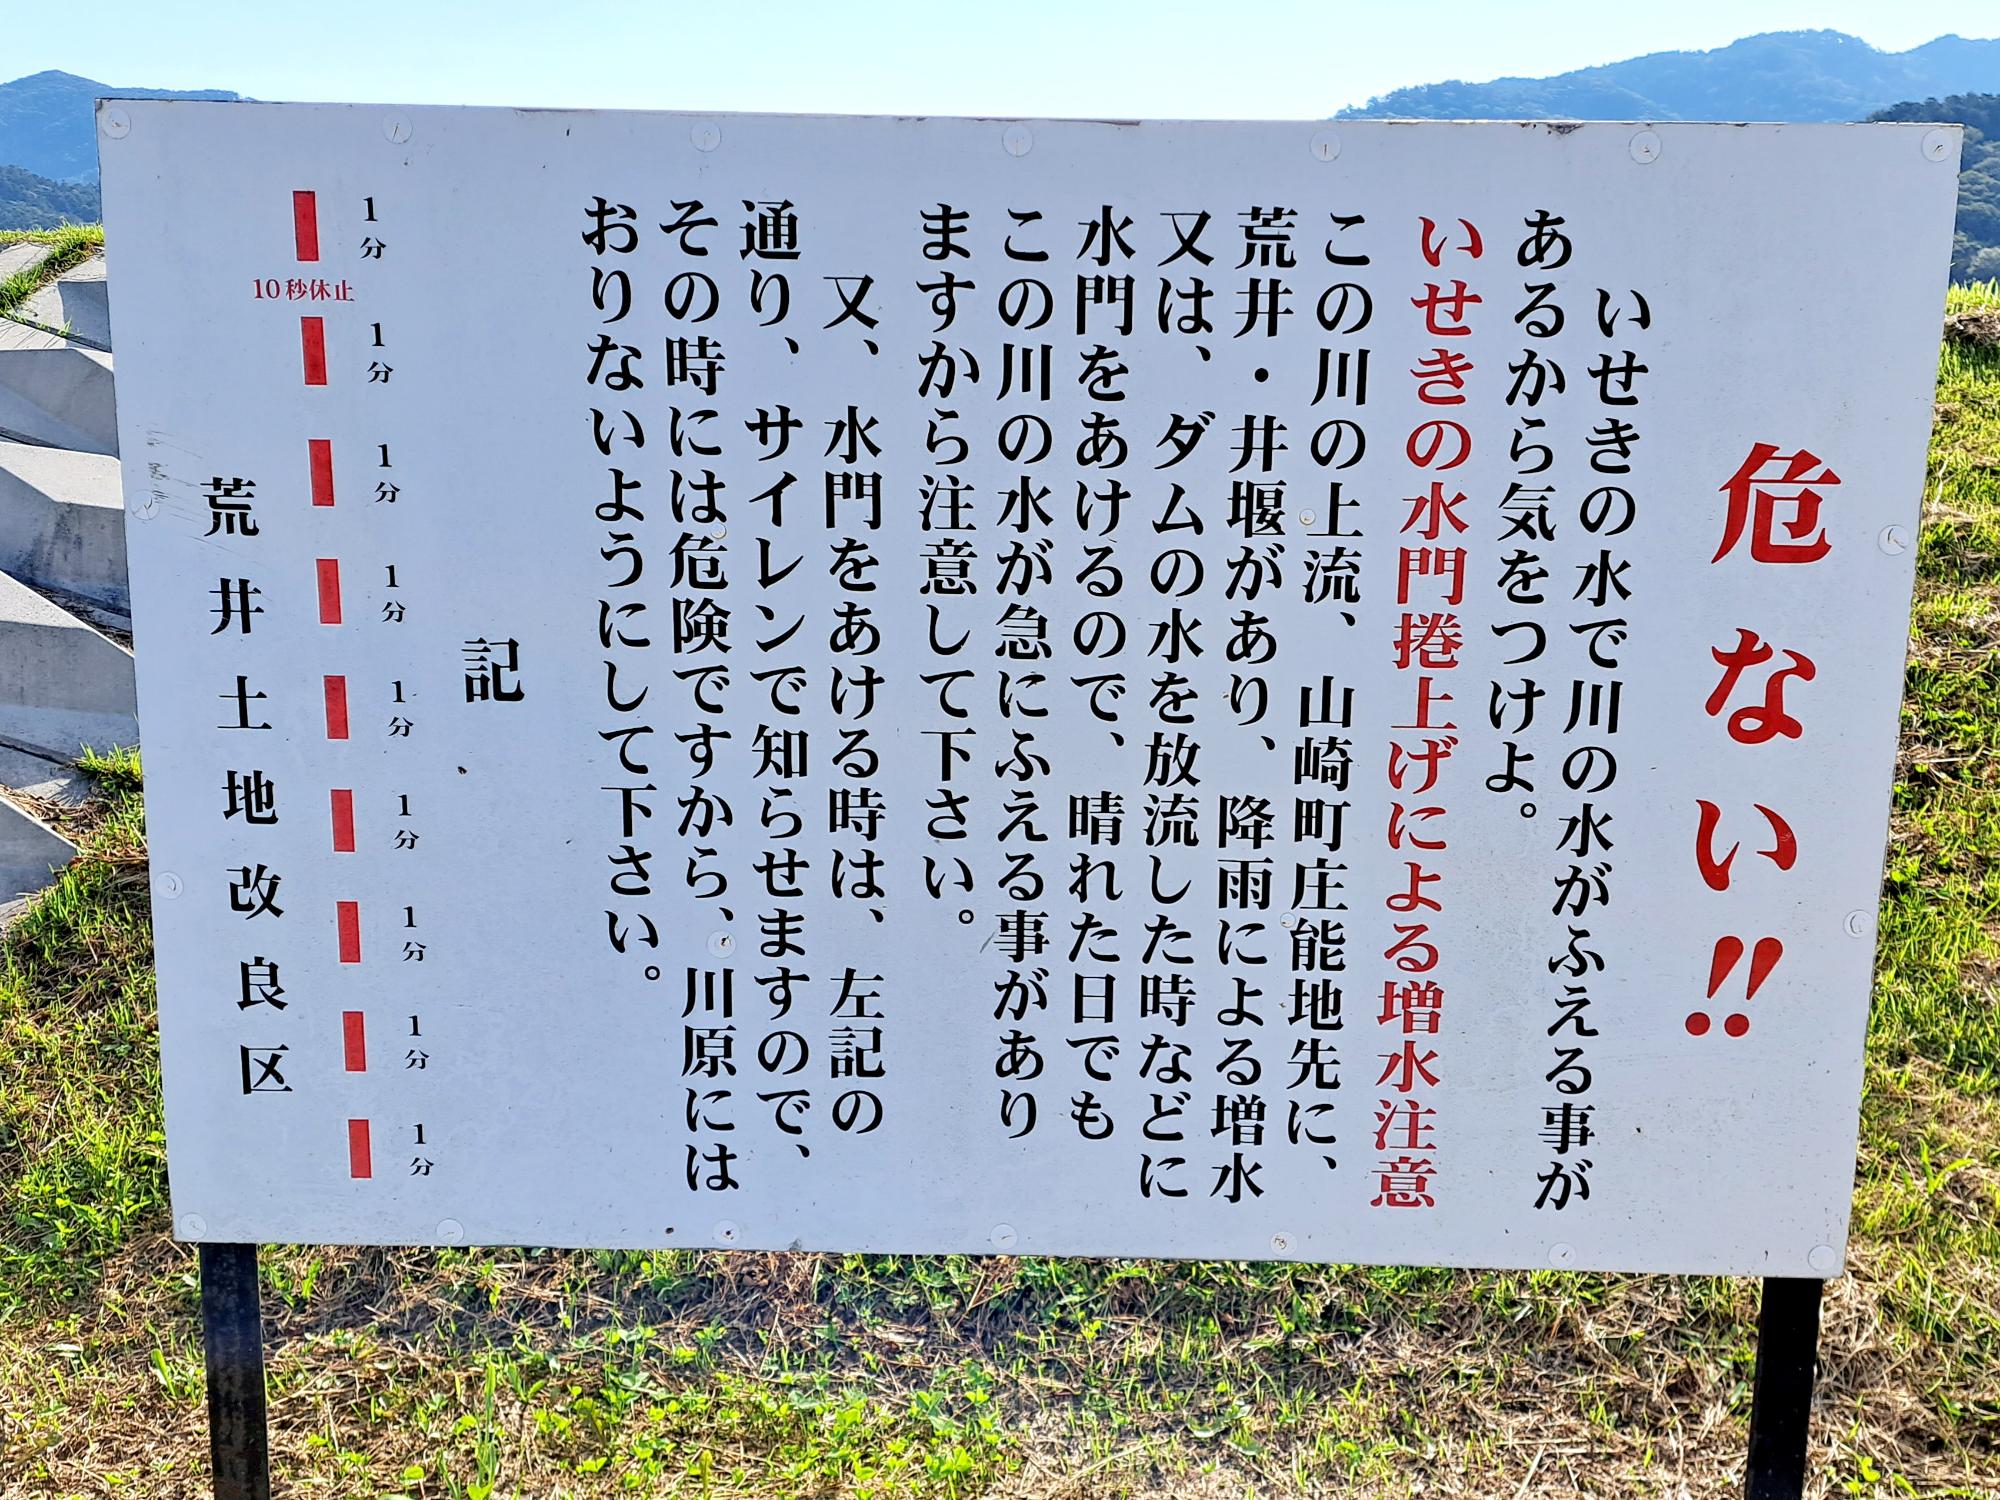 危ない!!
いせきの水で川の水がふえる事が
あるから気をつけよ。
いせきの水門捲上げによる増水注意
この川の上流、山崎町庄能地先に、
荒井・井堰があり、降雨による増水
又は、ダムの水を放流した時などに
水門をあけるので、晴れた日でも
この川の水が急にふえる事があり
ますから注意して下さい。
又、水門をあける時は、左記の
通り、サイレンで知らせますので、
その時には危険ですから、川原には
おりないようにして下さい。
記
1分
10秒休止
1分
1分
1分
1分
1分
1分
1分
1分
荒井土地改良区